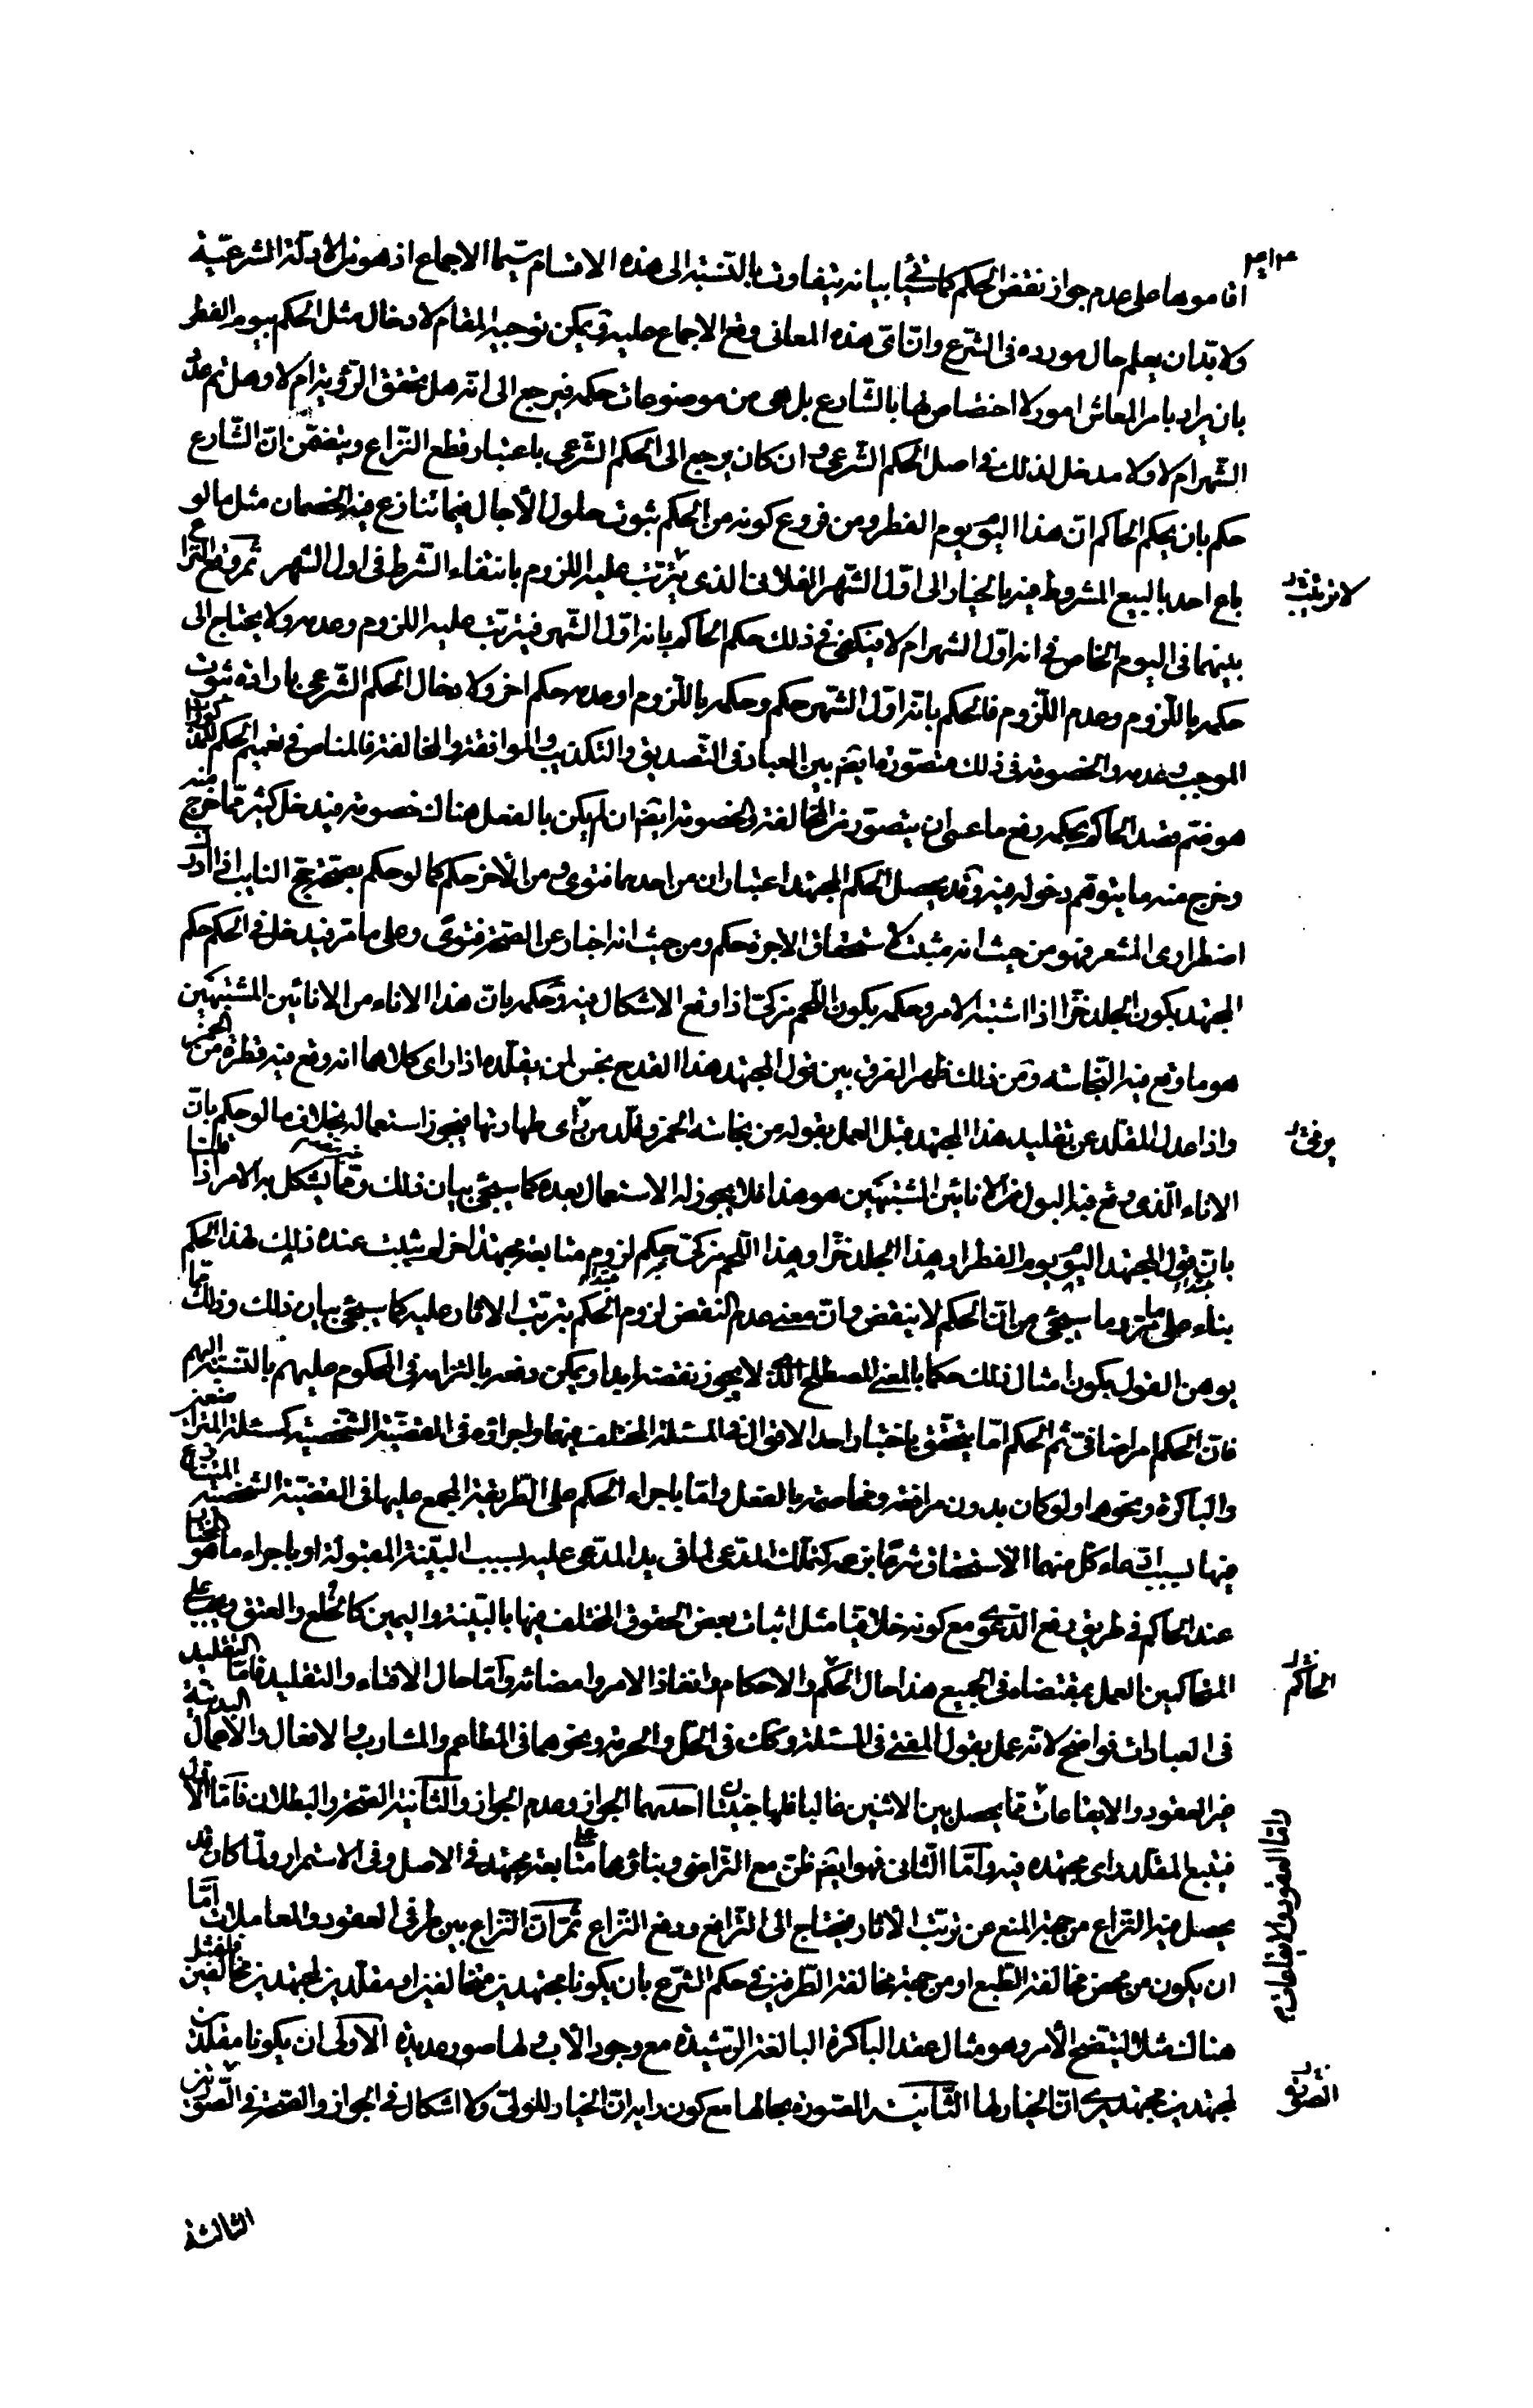 اقاموها على عدم جواز نقض الحكم كما سيأتي بيانه يتفاوت بالنسبة الى هذه الاقسام سيّما الاجماع اذ هو من الادلّة الشرعيّة
ولا بدّ ان يعلم حال مورده فى الشرع وانّ اىّ هذه المعانى وقع الاجماع عليه ويمكن توجيه المقام لادخال مثل الحكم بيوم الفطر
بان يراد بامر المعاش امور لا اختصاص لها بالشّارع بل هى من موضوعات حكمه فيرجع الى انّه هل يتحقق الرؤية ام لا وهل تم عدد
الشهر ام لا ولا مدخل لذلك فى اصل الحكم الشّرعى وان كان يرجع الى الحكم الشّرعى باعتبار قطع النّزاع ويتضمّن انّ الشّارع
حكم بان يحكم الحاكم انّ هذا اليوم يوم الفطر ومن فروع كونه من الحكم ثبوت حلول الأجال فيما تنازع فيه الخصمان مثل ما لو
باع احد بالبيع المشروط فيه بالخيار الى اوّل الشّهر الفلانى الذى يترتب عليه اللزوم بانتفاء الشّرط فى اول الشهر ثم وقع النزاع
بينهما فى اليوم الخاص فى انه اوّل الشهر ام لا فيكفى فى ذلك حكم الحاكم بانه اوّل الشّهر فيترتب عليه اللزوم وعدمه ولا يحتاج الى
حكمه باللّزوم وعدم اللّزوم فالحكم بانّه اوّل الشّهر حكم وحكمه باللّزوم او عدمه حكم اخر ولادخال الحكم الشّرعى بارادة ثبوت
الموجب وعدمه والخصومة فى ذلك متصوّرة ايضا بين العباد فى التّصديق والتكذيب والموافقة والمخالفة فالمناص فى تعميم الحكم المذكور
هو فهم قصد الحاكم بحكمه رفع ما عسى ان يتصور من المخالفة والخصومة ايضا ان لم يكن بالفعل هناك خصومة فيدخل كثير ممّا خرج منه
وخرج منه ما يتوهم دخوله فيه وقد يحصل الحكم المجتهد اعتباران من احدهما فتوى ومن الأخر حكم كما لو حكم بصحّة حج النايب اذا ادرك
اضطرارى المشعر فهو من حيث انه مثبت لاستحقاق الاجرة حكم ومن حيث انه اخبار عن الصّحة فتوى وعلى ما مرّ فيدخل فى الحكم حكم
المجتهد بكون الجلد خزّا اذا اشتبه الامر وحكمه بكون اللّحم مزكّى اذا وقع الاشكال فيه وحكمه بانّ هذا الاناء من الانائين المشتبهين
هو ما وقع فيه النّجاسة ومن ذلك ظهر الفرق بين قول المجتهد هذا القدح نجس لمن يقلّده اذا راى كلاهما انه وقع فيه قطرة من الخمر
واذا عدل المقلّد عن تقليد هذا المجتهد قبل العمل بقوله من نجاسة الخمر وقلّد من يرى طهارتها فيجوز استعماله بخلاف ما لو حكم بانّ
الاناء الّذى وقع فيه البول من الانائين المشتبهين هو هذا فلا يجوز له الاستعمال بعده كما سيجئ بيان ذلك وممّا يشكل به الامر اذا قلنا
بانّ قول المجتهد اليوم يوم الفطر او هذا الجلد خزّ او هذا اللّحم مزكّى حكم لزوم متابعة مجتهد اخر لم يثبت عنده ذلك لهذا الحكم
بناء على ما مرّ وما سيجئ من انّ الحكم لا ينقض وانّ معنى عدم النقض لزوم الحكم بترتب الاثار عليه كما سيجئ بيان ذلك وذلك ممّا
يوهن القول بكون امثال ذلك حكما بالمعنى المصطلح الذى لا يجوز نقضه ابدا ويمكن دفعه بالتزامه فى المحكوم عليهم بالنسبة اليهم
فانّ الحكم امر اضافى ثم الحكم امّا يتحقّق باختيار احد الاقوال فى المسئلة المختلف فيها واجرائه فى القضيّة الشّخصيّة كمسئلة
والباكرة ونحوها ولو كان بدون مرافعة ومخاصمة بالفعل وامّا باجراء الحكم على الطّريقة المجمع عليها فى القضيّة الشخصيّة المتنازع
فيها بسبب ادّعاء كلّ منهما الاستحقاق شرعا بزعمه كتملّك المدّعى لما فى يد المدّعى عليه بسبب البيّنة المقبولة او باجراء ما هو المختار
عند الحاكم فى طريق رفع الدّعوى مع كونه خلافيّا مثل اثبات بعض الحقوق المختلف فيها بالبيّنة واليمين كالخلع والعتق ويجب على
المتحاكمين العمل بمقتضاه فى الجميع هذا حال الحكم والاحكام وانفاذ الامر وامضائه وامّا حال الافتاء والتقليد فامّا التقليد
فى العبادات فواضح لانّه عمل بقول المفتى فى المسئلة وكذلك فى الحلّ والحرمة ونحوهما فى المطاعم والمشارب والافعال والاعمال البدنيّة
غير العقود والايقاعات ممّا يحصل بين الاثنين غالبا فلها جهتان احديهما الجواز وعدم الجواز والثانية الصّحة والبطلان فامّا الاول
فيتبع المقلّد راى مجتهده فيه وامّا الثّانى فهو ايضا ظنّ مع التراضى وبنائهما على متابعة مجتهد فى الاصل وفى الاستمرار ولمّا كان قد
يحصل فيه النّزاع من جهة المنع عن ترتّب الاثار فيحتاج الى الترافع ورفع النّزاع ثم انّ النّزاع بين طرفى العقود والمعاملات امّا
ان يكون من محض مخالفة الطّبع او من جهة مخالفة الطّرفين فى حكم الشّرع بان يكونا مجتهدين متخالفين او مقلّدين لمجتهدين مخالفين فلنمثل
هناك مثالا ليتّضح الأمر وهو مثال عقد الباكرة البالغة الرّشيدة مع وجود الأب ولها صور عديدة الاولى ان يكونا مقلّدين
لمجتهد يرى انّ الخيار لها الثّانية الصّورة بحالها مع كون رايه انّ الخيار للولىّ ولا اشكال فى الجواز والصّحة فى الصّورتين
الثالثة
وامّا العقود والايقاعات
الحاكم